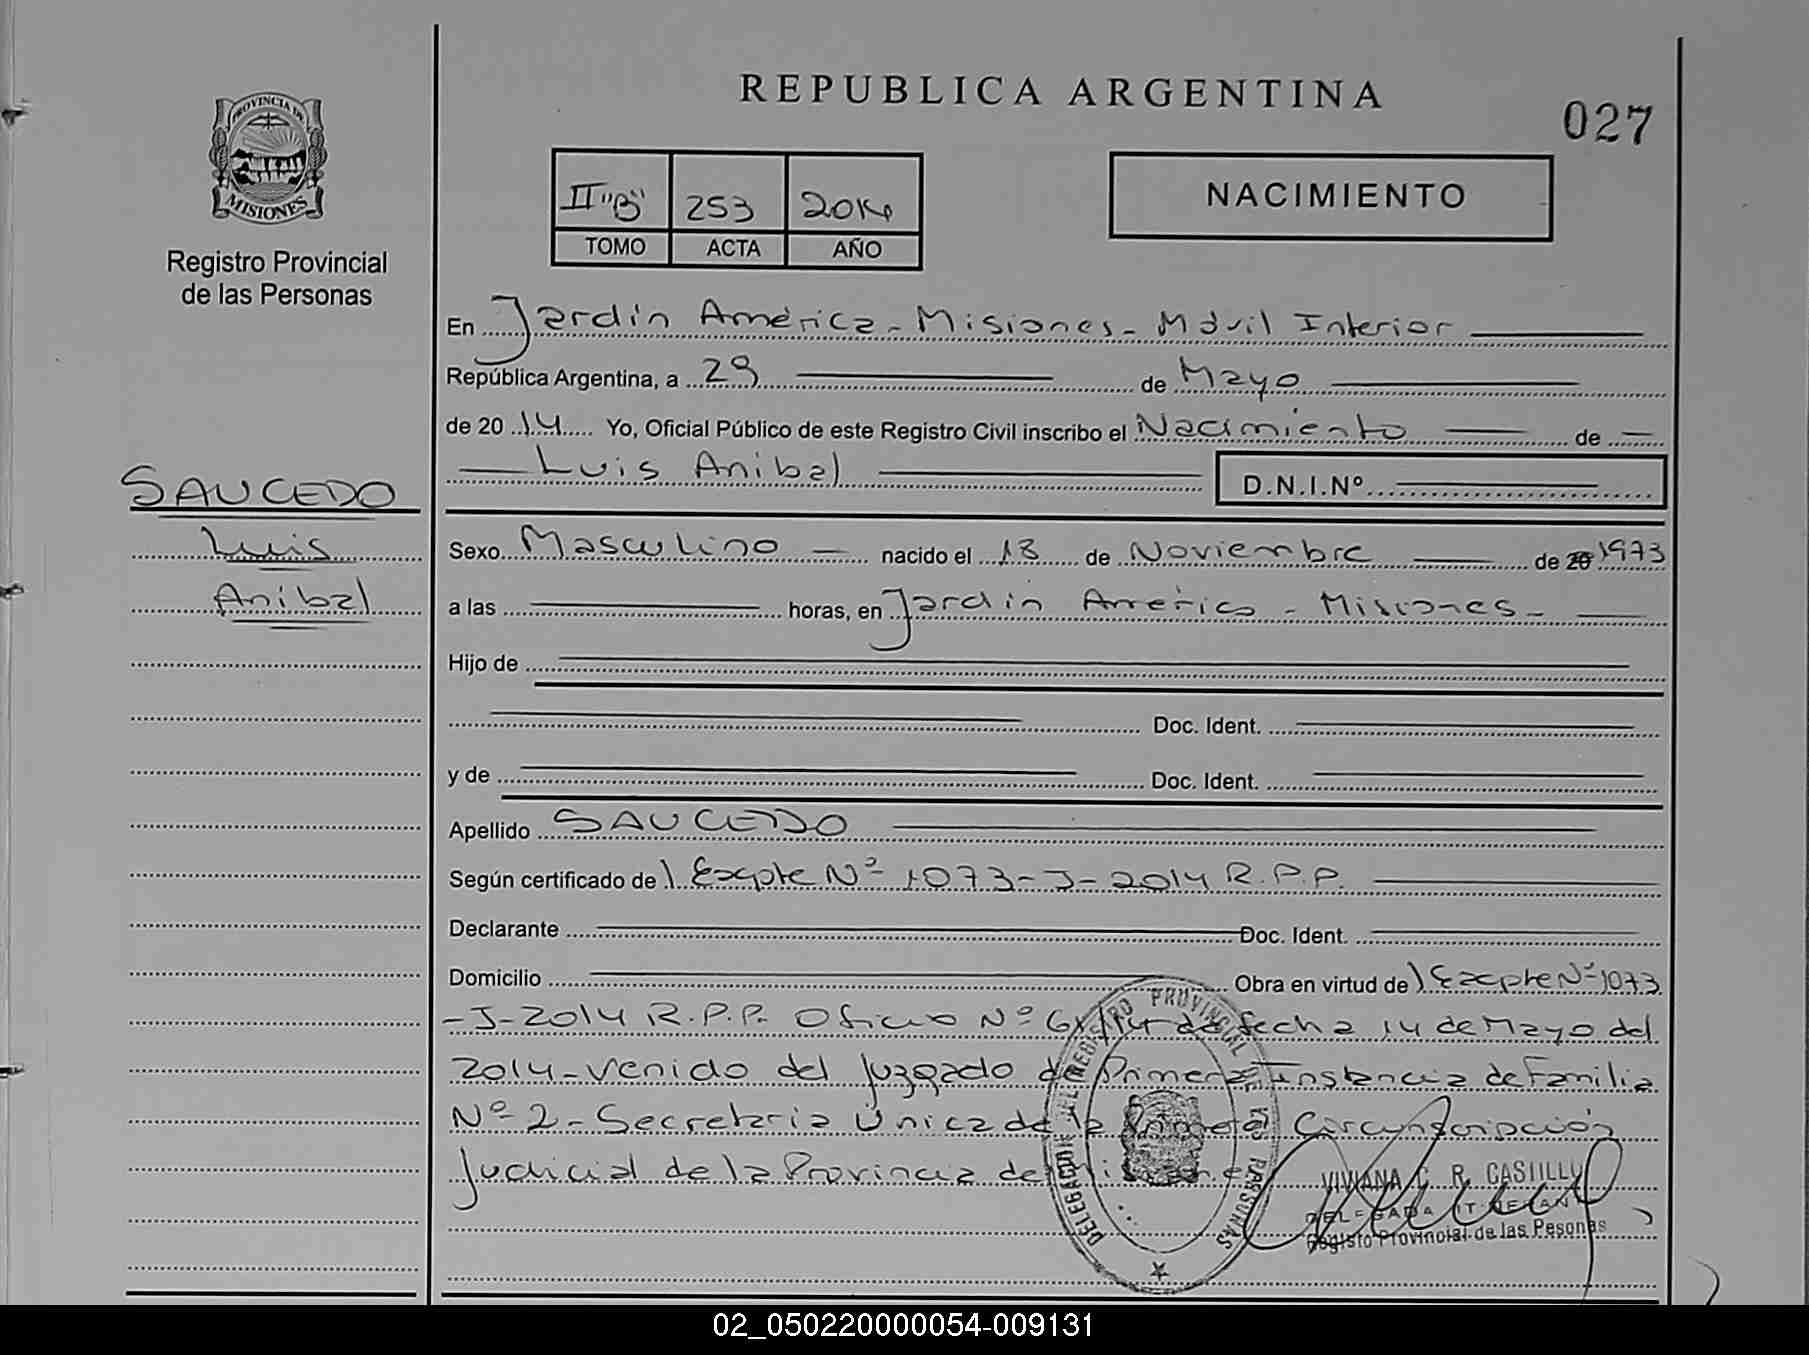 REPUBLICA ARGENTINA
027
PROVINCIA DE
MISIONES
Registro Provincial
de las Personas
II "B" 253 2014
TOMO ACTA AÑO
NACIMIENTO
En Jardín América - Misiones - Móvil Interior
República Argentina, a 29 de Mayo
de 20 14 Yo, Oficial Público de este Registro Civil inscribo el Nacimiento de
Luis Anibal D.N.I.Nº
SAUCEDO
Luis
Anibal
Sexo Masculino nacido el 18 de Noviembre de 20 1973
a las horas, en Jardin América - Misiones -
Hijo de
Doc. Ident.
y de Doc. Ident.
Apellido SAUCEDO
Según certificado de ) Expte Nº 1073-J-2014 R.P.P.
Declarante Doc. Ident.
Domicilio Obra en virtud de ) Expte Nº 1073
-J-2014 R.P.P. Oficio Nº /14 de fecha 14 de Mayo del
2014 - venido del Juzgado de Primera Instancia de Familia
Nº 2 - Secretaria Única de la Primera Circunscripción
Judicial de la Provincia de Misiones
DELEGACION REGISTRO PROVINCIAL DE LAS PERSONAS
VIVIANA C. R. CASTILLO
DELEGADA ITINERANTE
Registo Provincial de las Pesonas
02_050220000054-009131